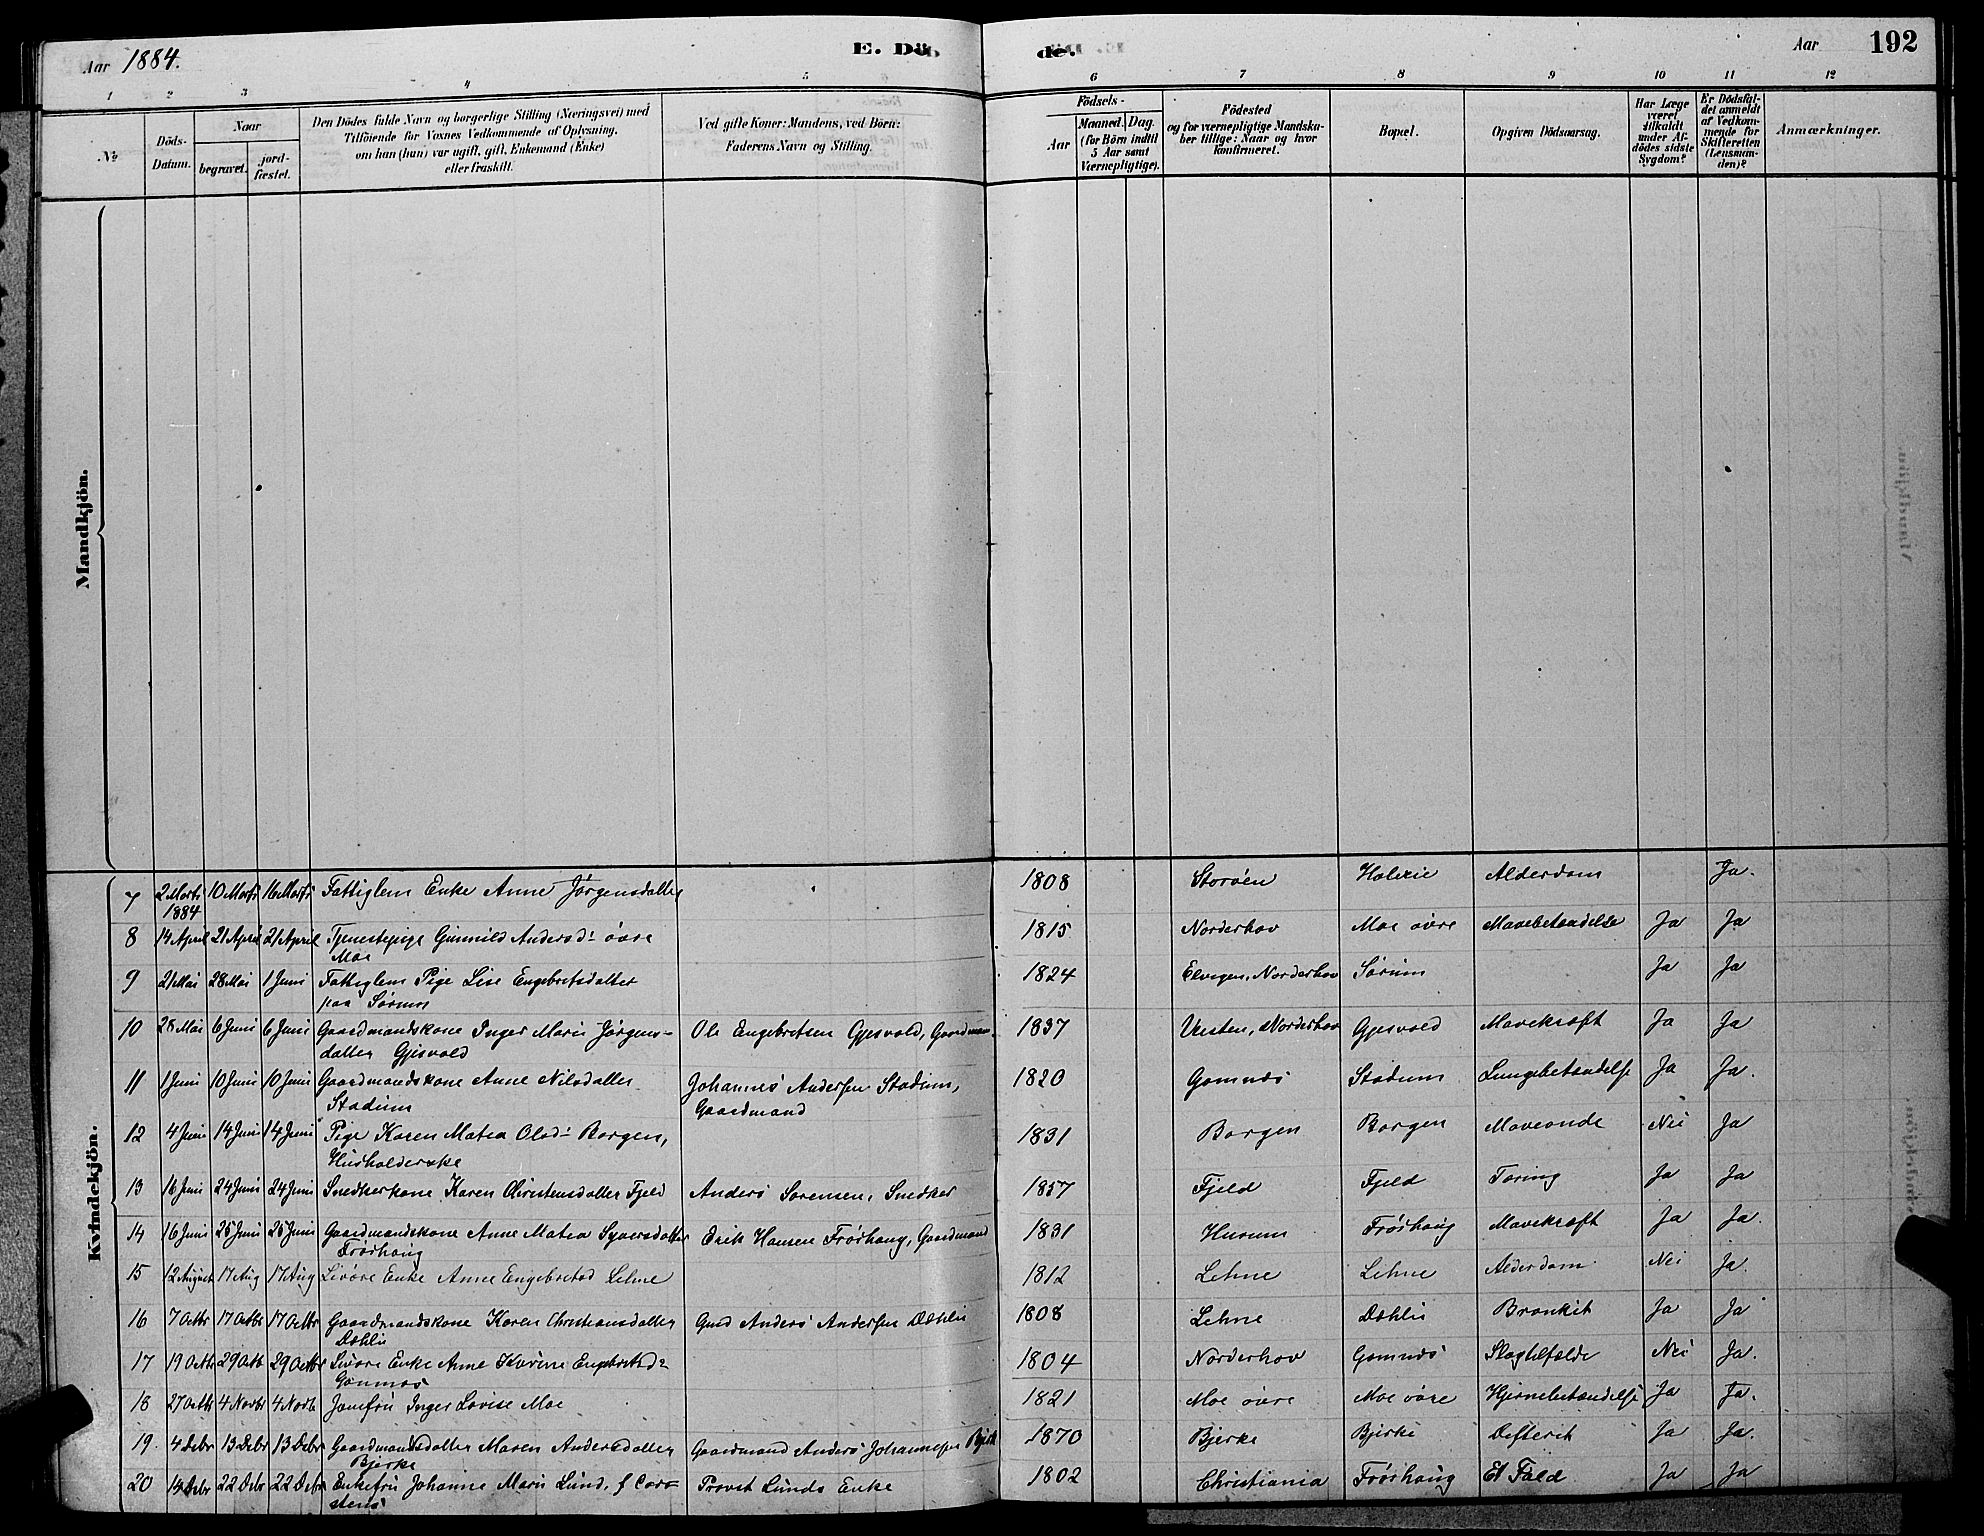 Aar 1884.
E. Dö
de.
Aar
192
1 2 3 4 5 6 7 8 9 10 11 12
№
Döds-
Datum.
Naar
begravet.
jord-
fæstet.
Den Dödes fulde Navn og borgerlige Stilling (Næringsvei) med
Tilföiende for Voxnes Vedkommende af Oplysning,
om han (hun) var ugift, gift, Enkemand (Enke)
eller fraskilt.
Ved gifte Koner: Mandens, ved Börn:
Faderens Navn og Stilling.
Födsels-
Aar
Maaned. Dag.
(for Börn indtil
5 Aar samt
Værnepligtige).
Födested
og for værnepligtige Mandska-
ber tillige: Naar og hvor
konfirmeret.
Bopæl.
Opgiven Dödsaarsag.
Har Læge
været
tilkaldt
under Af-
dödes sidste
Sygdom?
Er Dödsfal-
det anmeldt
af Vedkom-
mende for
Skifteretten
(Lensman-
den)?
Anmærkninger.
Mandkjön.
Kvindekjön.
7 2 Marts 10 Marts 16 Marts Fattiglem Enke Anne Jørgensdatter 1808 Storöen Holerie Alderdom Ja.
1884
8 14 April 21 April 21 April Tjenestepige Gunnild Andersd: övre 1815 Norderhov Moe övre Mavebetændelse Ja Ja
Moe
9 21 Mai 28 Mai 1 Juni Fattiglem Pige Lise Engebretsdatter 1824 Elvigen, Norderhov Sörum Ja Ja
paa Sörum
10 28 Mai 6 Juni 6 Juni Gaardmandskone Inger Marie Jørgens- Ole Engebretsen Gjesvold, Gaardman 1837 Vesten, Norderhov Gjesvold Mavekræft Ja Ja
datter Gjesvold
11 1 Juni 10 Juni 10 Juni Gaardmandskone Anne Nilsdatter Johannes Andersen Stadum, 1820 Gomnæs Stadum Lungebetændelse Ja Ja.
Stadum Gaardmand
12 4 Juni 14 Juni 14 Juni Pige Karen Matea Olsd: Borgen, 1831 Borgen Borgen Maveonde Nei Ja
Husholderske
13 16 Juni 24 Juni 24 Juni Snedkerkone Karen Christensdatter Fjeld Anders Sorensen, Snedker 1857 Fjeld Fjeld Tæring Ja Ja
14 16 Juni 25 Juni 25 Juni Gaardmandskone Anne Matea Syversdatter Erik Hansen Frørhaug, Gaardmand 1831 Hurum Frørhaug Mavekræft Ja Ja.
Frørhaug
15 12 August 17 Aug 17 Aug Livöre Enke Anne Engebretsd Lehne 1812 Lehne Lehne Alderdom Nei Ja.
16 7 Octbr 17 Octbr 17 Octbr Gaardmandskone Karen Christiansdatter Gmd Anders Andersen Dæhlie 1808 Lehne Dæhlie Bronkit Ja Ja
Dæhlie
17 19 Octbr 29 Octb 29 Octbr Livöre Enke Anne Karine Engebretsd: 1804 Norderhov Gomnæs Slagtilfælde Nei Ja.
Gomnæs
18 27 Octbr 4 Novbr 4 Novbr Jomfru Inger Lovise Moe 1821 Moe övre Moe övre Hjernebetændelse Ja Ja.
19. 4 Debr 13 Debr 13 Debr Gaardmandsdatter Maren Andersdatter Gaardmand Anders Johannesen Bjerk 1870 Bjerke Bjerke Defterit Ja Ja.
Bjerke
20 14 Debr 22 Debr 22 Debr Enkefru Johanne Marie Lund, f Car- Provst Lunds Enke 1802 Christiania Frørhaug Et Fald Ja Ja
stens